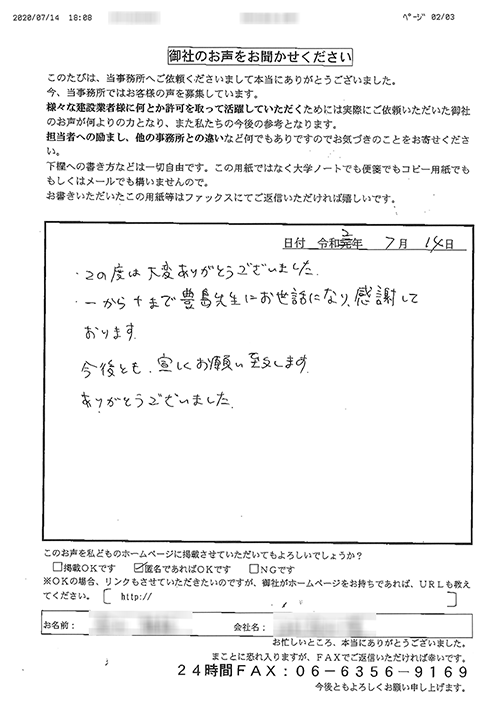 2020/07/14 18:08 ﾍﾟｰｼﾞ 02/03
御社のお声をお聞かせください
このたびは、当事務所へご依頼くださいまして本当にありがとうございました。
今、当事務所ではお客様の声を募集しています。
様々な建設業者様に何とか許可を取って活躍していただくためには実際にご依頼いただいた御社
のお声が何よりの力となり、また私たちの今後の参考となります。
担当者への励まし、他の事務所との違いなど何でもありですのでお気づきのことをお寄せくださ
い。
下欄への書き方などは一切自由です。この用紙ではなく大学ノートでも便箋でもコピー用紙でも
もしくはメールでも構いませんので。
お書きいただいたこの用紙等はファックスにてご返信いただければ嬉しいです。
日付 令和元年 2 7月 14日
・この度は大変ありがとうございました.
・一から十まで豊島先生にお世話になり、感謝して
おります.
今後とも、宜しくお願い至します.
ありがとうございました.
このお声を私どものホームページに掲載させていただいてもよろしいでしょうか?
□掲載OKです ☑匿名であればOKです □NGです
※OKの場合、リンクもさせていただきたいのですが、御社がホームページをお持ちであれば、URLも教え
てください。[ http:// ]
お名前: 会社名:
お忙しいところ、本当にありがとうございました。
まことに恐れ入りますが、FAXでご返信いただければ幸いです。
24時間FAX:06-6356-9169
今後ともよろしくお願い申し上げます。